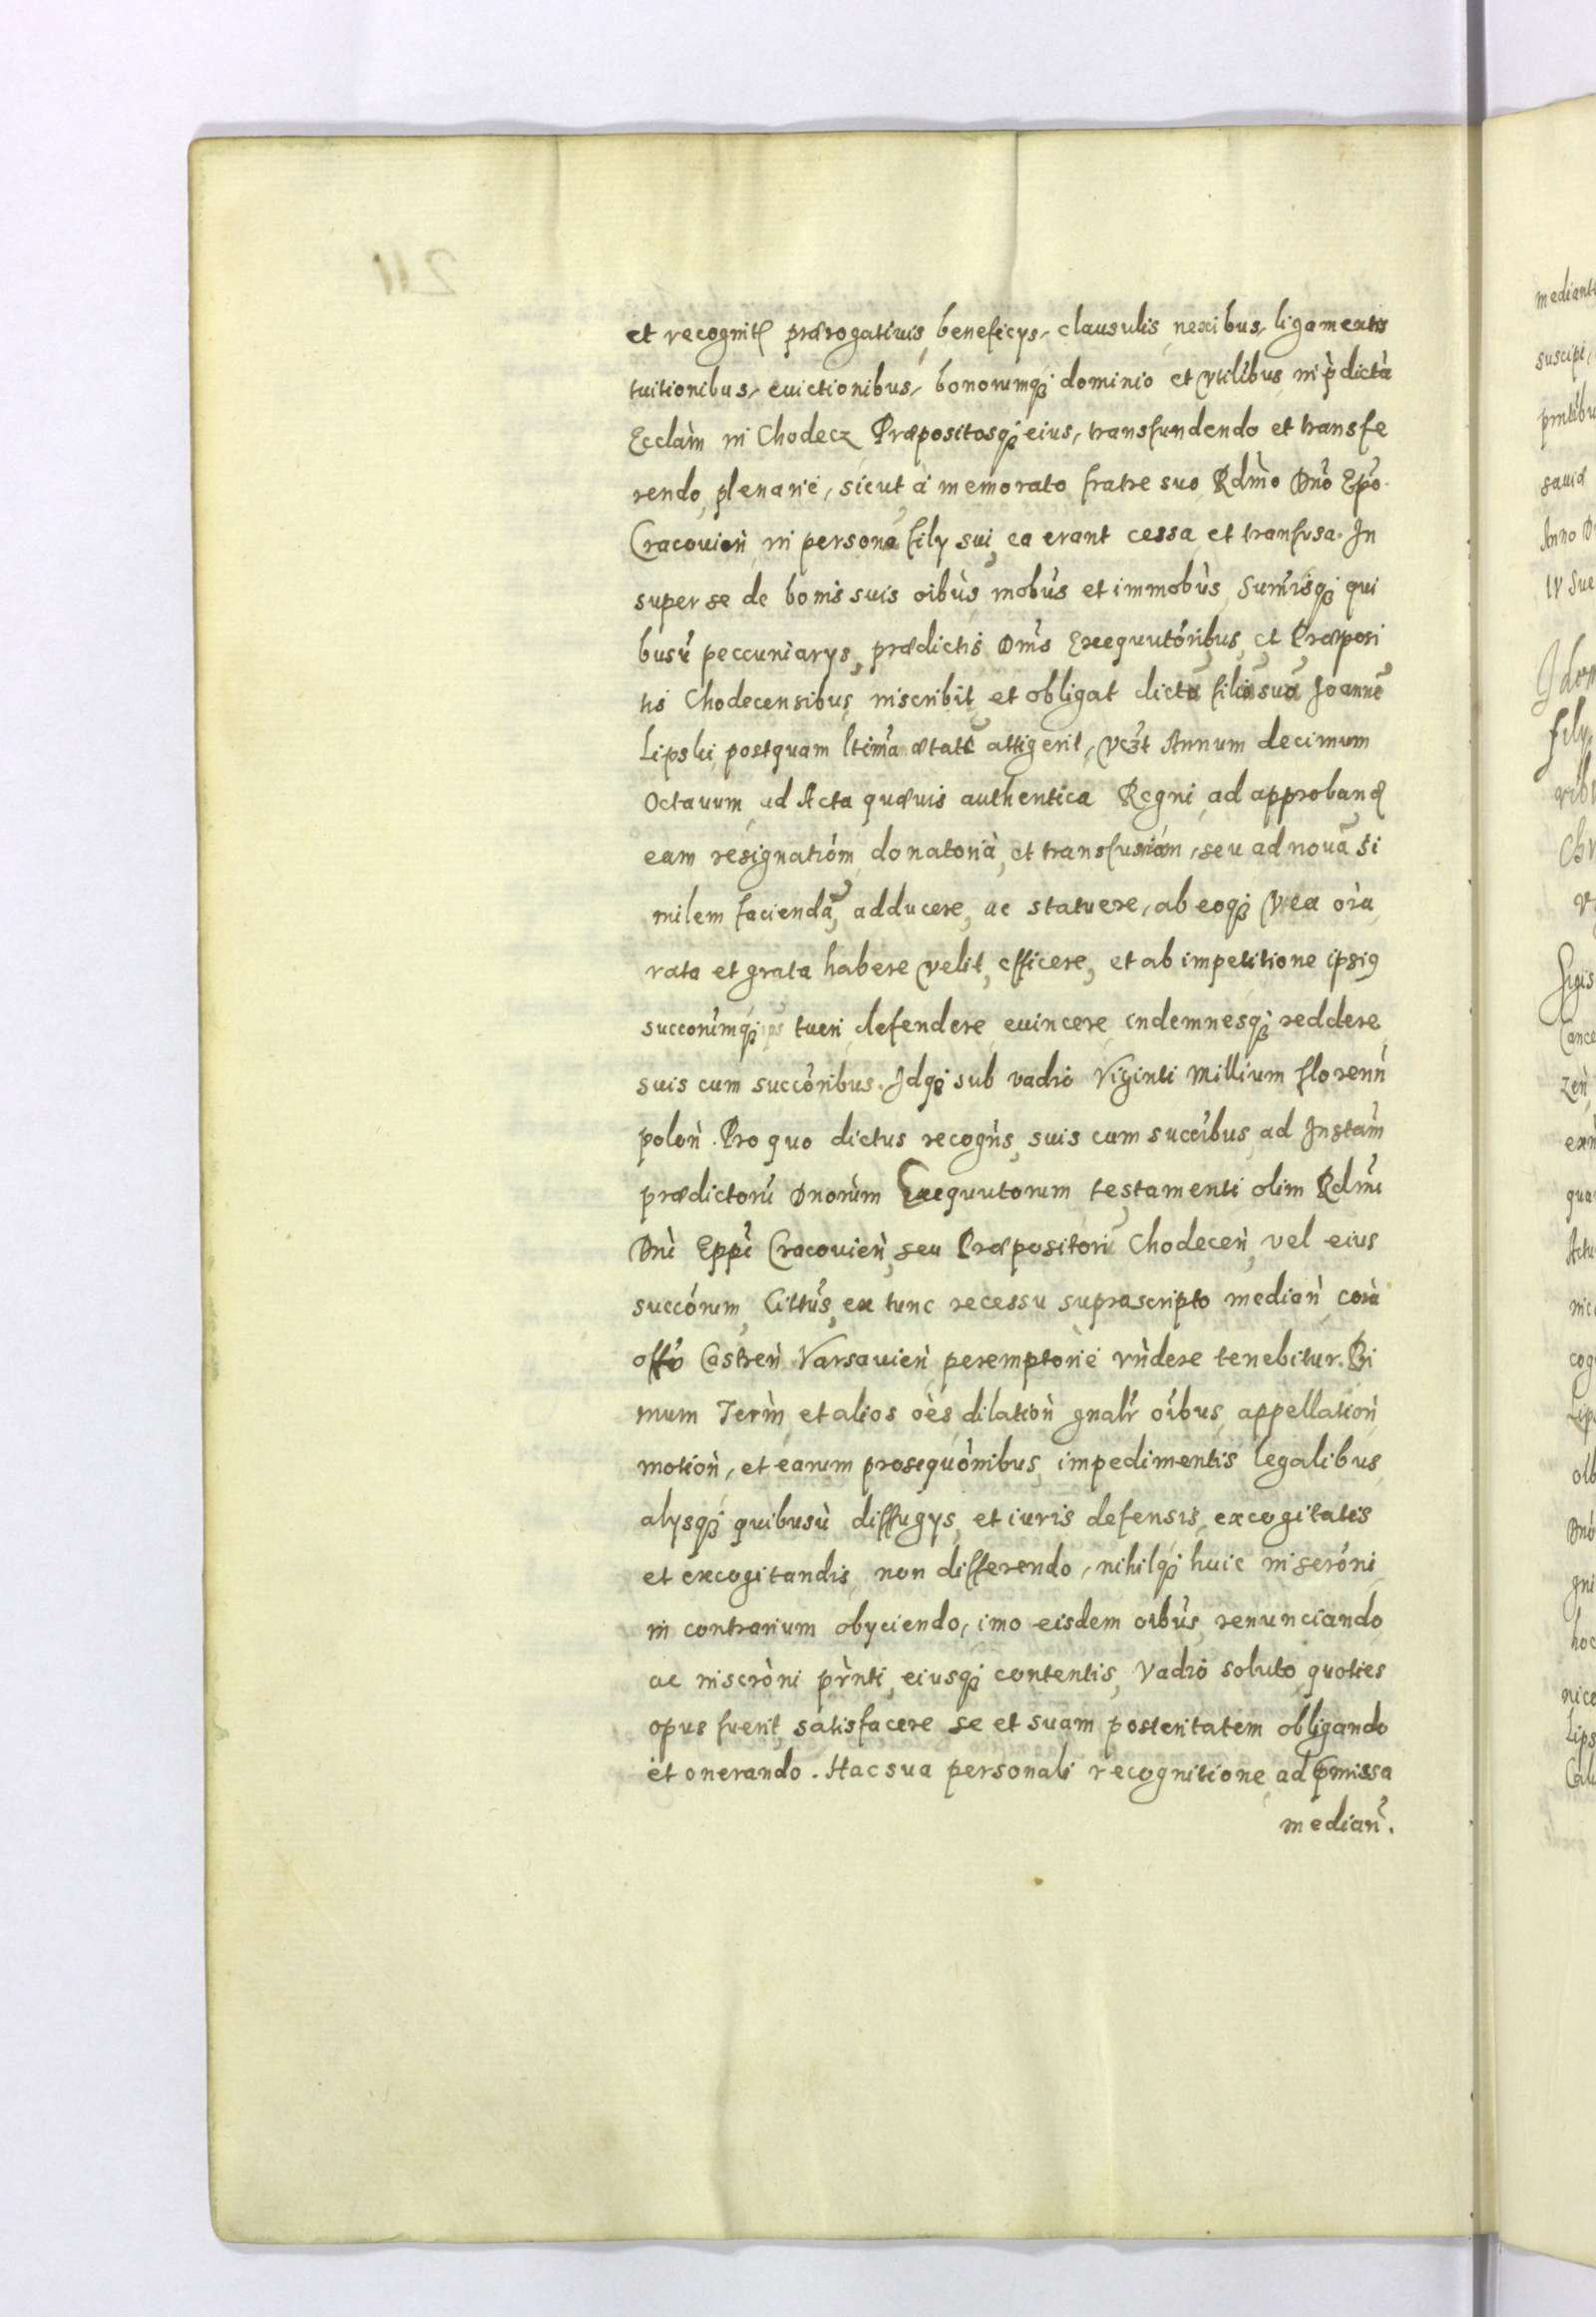 et recognit prærogativis, beneficys, clausulis, nexibus, ligamentis
tuitionibus, evictionibus, bonorumq dominio et vtilibus, in p̀dictà
Ecclàm in Chodecz Præpositosq eius, transfundendo et transfe
rendo, plenarie, sicut à memorato fratre suo Rdm̀o Dno Epo
Cracovień, in persona fily sui, ea erant cessa et tranfusa. In
super se de bonis suis oibùs mobùs et immobùs, Summisq qui
busù peccuniarys, prædictis Dnis Exequutoribus, et Præposi
tis Chodecensibus inscribit et obligat dictũ filiũ suũ Joannẽ
Lipski, postquam ltima ætatẽ attigerit, vezt Annum decimum
Octauum, ad Acta quævis authentica Regni, ad approband
eam resignatióm, donatoria, et transfusióm, seu ad nouã si
milem faciendã, adducere, ac statuere, ab eoq vt ea oia
rata et grata habere velit, efficere, et ab impetitione ipsig
succorumq tueri, defendere, euincere, indemnesq reddere
suis cum succóribus. Idq sub vadio Viginti Millium florenń
poloń. Pro quo dictus recogńs, suis cum succibus, ad Instam
prædictorũ Dnorùm Exequutorum testamenti olim Rdmi
Dni Eppi Cracovień, seu Præpositorũ Chodeceń, vel eius
succórum, Cittus, ex tunc recessu suprascripto mediań, corà
offó Castreń Varsavień peremptorie rńdere tenebitur. Pri
mum Term, et alios oès dilatioń gnalr oibus, appellatioń
motioń, et earum prosequónibus, impedimentis legalibus
alysq quibusù diffugys, et iuris defensis, excogitatis
et excogitandis, non differendo, nihilq huic inscróni
in contrarium obyciendo, imo eisdem oibùs renunciando
ac inscròni pr̀nti, eiusq contentis, vadio soluto, quoties
opus fuerit, satisfacere se et suam posteritatem obligando
et onerando. Hac sua personali recognitione, ad pmissa
mediań.